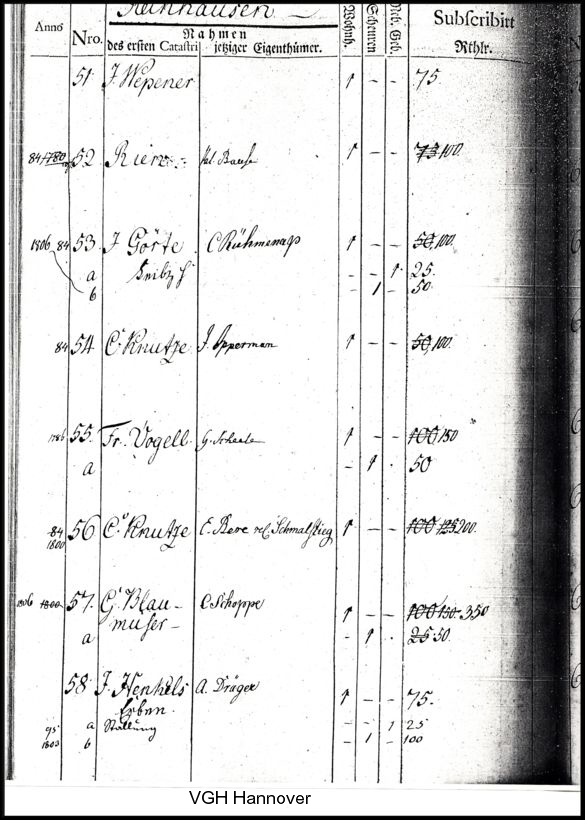 Reinhausen.
Anno Nro. Nahmen Wohnh. Scheuren Neb. Geb. Subscribirt
des ersten Catastri jetziger Eigenthümer. Rthlr.
51. J. Wepener 1 – – 75
84 1780 52 Rien Bause 1 – – 73 100.
1806 84 53. J Görte C Rühmenap 1 – – 50, 100.
a – – 1 25.
b – 1 – 50.
84 54 C. Knutze J. Opperman 1 – – 50, 100.
1786 55. Fr. Vogell G. Scheele 1 – – 100 150
a – 1 . 50
84 56 C. Knutze C. Bere rel. Schmalstieg 1 – – 100 125 200.
1800
1806 1800 57. G. Blau- C. Schoppe 1 – – 100 150 350
muser-
a – 1 . 25 50.
58. J. Henkels A. Dräger 1 – – 75.
Erben.
95 a Stallung – – 1 25
1803 b – 1 – 100
VGH Hannover